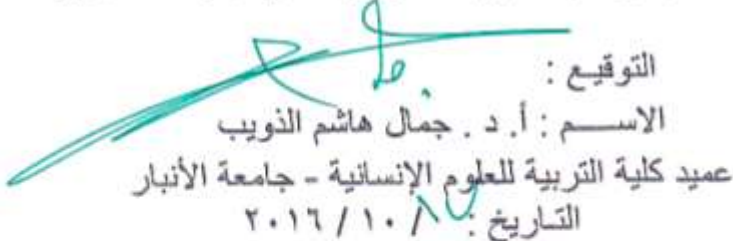 التوقيع :
الاســـم : أ. د . جمال هاشم الذويب
عميد كلية التربية للعلوم الإنسانية - جامعة الأنبار
التاريخ : ١٧ / ١٠ / ٢٠١٦